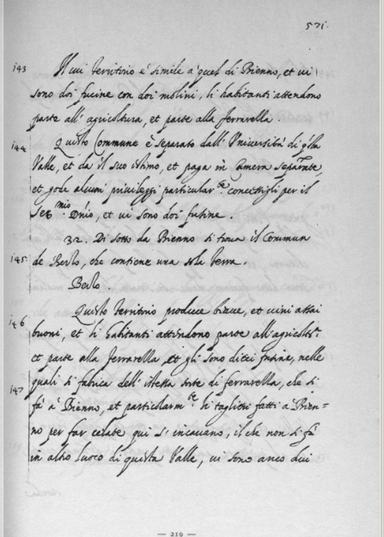 571.
143 Il cui territorio è simile à quel di Bienno, et vi
sono doi fucine con doi molini, li habitanti attendono
parte all'agricultura, et parte alla ferrarella.
144 Questo Commune è separato dall'Università di
Valle, et dà il suo estimo, et paga in Camera separate
et gode alcuni privileggi particular.te concessigli per il
Ser.mo D'nio, et vi sono doi fusine.
32. Di sotto da Bienno si trova il Commun
145 de Berzo, che contiene una sola terra.
Berzo.
146 Questo territorio produce biave, et vini assai
buoni, et li habitanti attendono parte all'agricolt.a
et parte alla ferrarella et gli sono dieci fusine, nelle
147 quali si fabrica dell'istessa sorte di ferrarella, che si
fà à Bienno, et particularm.te li taglieri fatti à Bien=
no per far celate qui s'incavano, il che non si fà
in altro luoco di questa Valle, vi sono anco dui
— 219 —